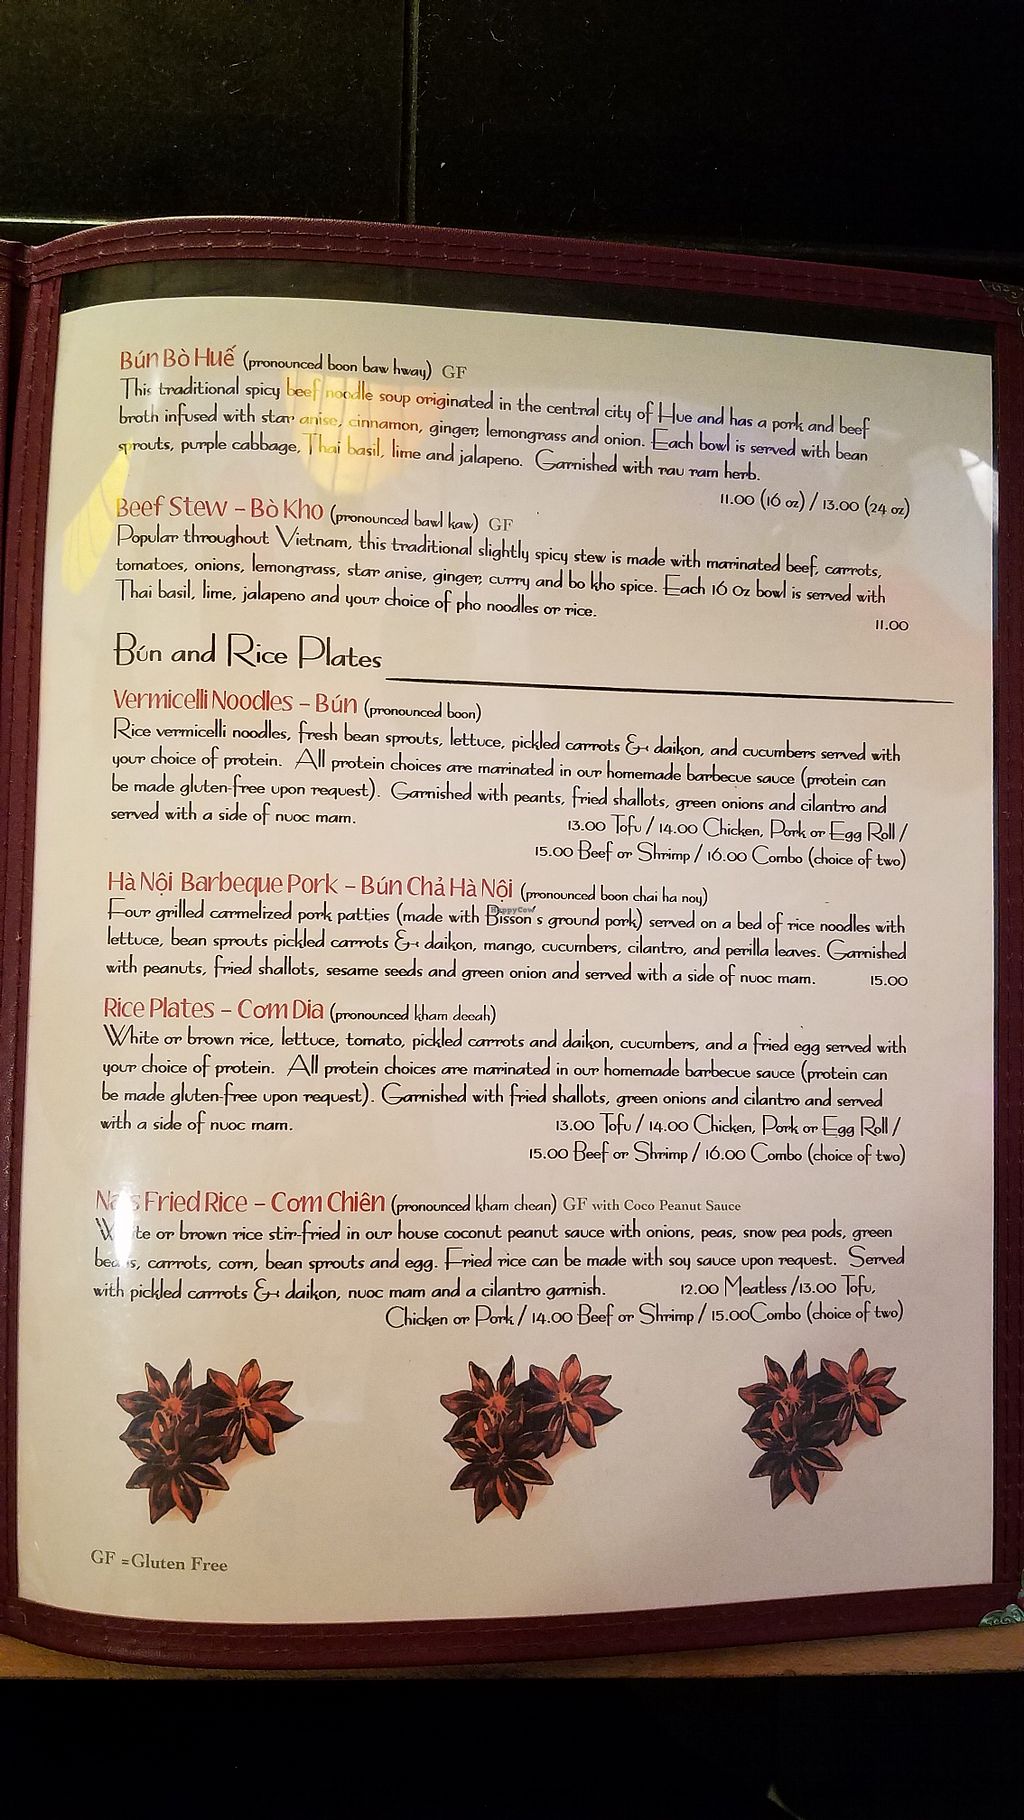 Bún Bò Huế (pronounced boon baw hway) GF
This traditional spicy beef noodle soup originated in the central city of Hue and has a pork and beef
broth infused with star anise, cinnamon, ginger, lemongrass and onion. Each bowl is served with bean
sprouts, purple cabbage, Thai basil, lime and jalapeno. Garnished with rau ram herb.
11.00 (16 oz) / 13.00 (24 oz)
Beef Stew – Bò Kho (pronounced bawl kaw) GF
Popular throughout Vietnam, this traditional slightly spicy stew is made with marinated beef, carrots,
tomatoes, onions, lemongrass, star anise, ginger, curry and bo kho spice. Each 16 Oz bowl is served with
Thai basil, lime, jalapeno and your choice of pho noodles or rice.
11.00
Bún and Rice Plates
Vermicelli Noodles – Bún (pronounced boon)
Rice vermicelli noodles, fresh bean sprouts, lettuce, pickled carrots & daikon, and cucumbers served with
your choice of protein. All protein choices are marinated in our homemade barbecue sauce (protein can
be made gluten-free upon request). Garnished with peants, fried shallots, green onions and cilantro and
served with a side of nuoc mam. 13.00 Tofu / 14.00 Chicken, Pork or Egg Roll /
15.00 Beef or Shrimp / 16.00 Combo (choice of two)
Hà Nội Barbeque Pork – Bún Chả Hà Nội (pronounced boon chai ha noy)
HappyCow
Four grilled carmelized pork patties (made with Bisson's ground pork) served on a bed of rice noodles with
lettuce, bean sprouts pickled carrots & daikon, mango, cucumbers, cilantro, and perilla leaves. Garnished
with peanuts, fried shallots, sesame seeds and green onion and served with a side of nuoc mam. 15.00
Rice Plates – Cơm Dia (pronounced kham deeah)
White or brown rice, lettuce, tomato, pickled carrots and daikon, cucumbers, and a fried egg served with
your choice of protein. All protein choices are marinated in our homemade barbecue sauce (protein can
be made gluten-free upon request). Garnished with fried shallots, green onions and cilantro and served
with a side of nuoc mam. 13.00 Tofu / 14.00 Chicken, Pork or Egg Roll /
15.00 Beef or Shrimp / 16.00 Combo (choice of two)
Fried Rice – Cơm Chiên (pronounced kham chean) GF with Coco Peanut Sauce
White or brown rice stir-fried in our house coconut peanut sauce with onions, peas, snow pea pods, green
beans, carrots, corn, bean sprouts and egg. Fried rice can be made with soy sauce upon request. Served
with pickled carrots & daikon, nuoc mam and a cilantro garnish. 12.00 Meatless /13.00 Tofu,
Chicken or Pork / 14.00 Beef or Shrimp / 15.00Combo (choice of two)
GF =Gluten Free